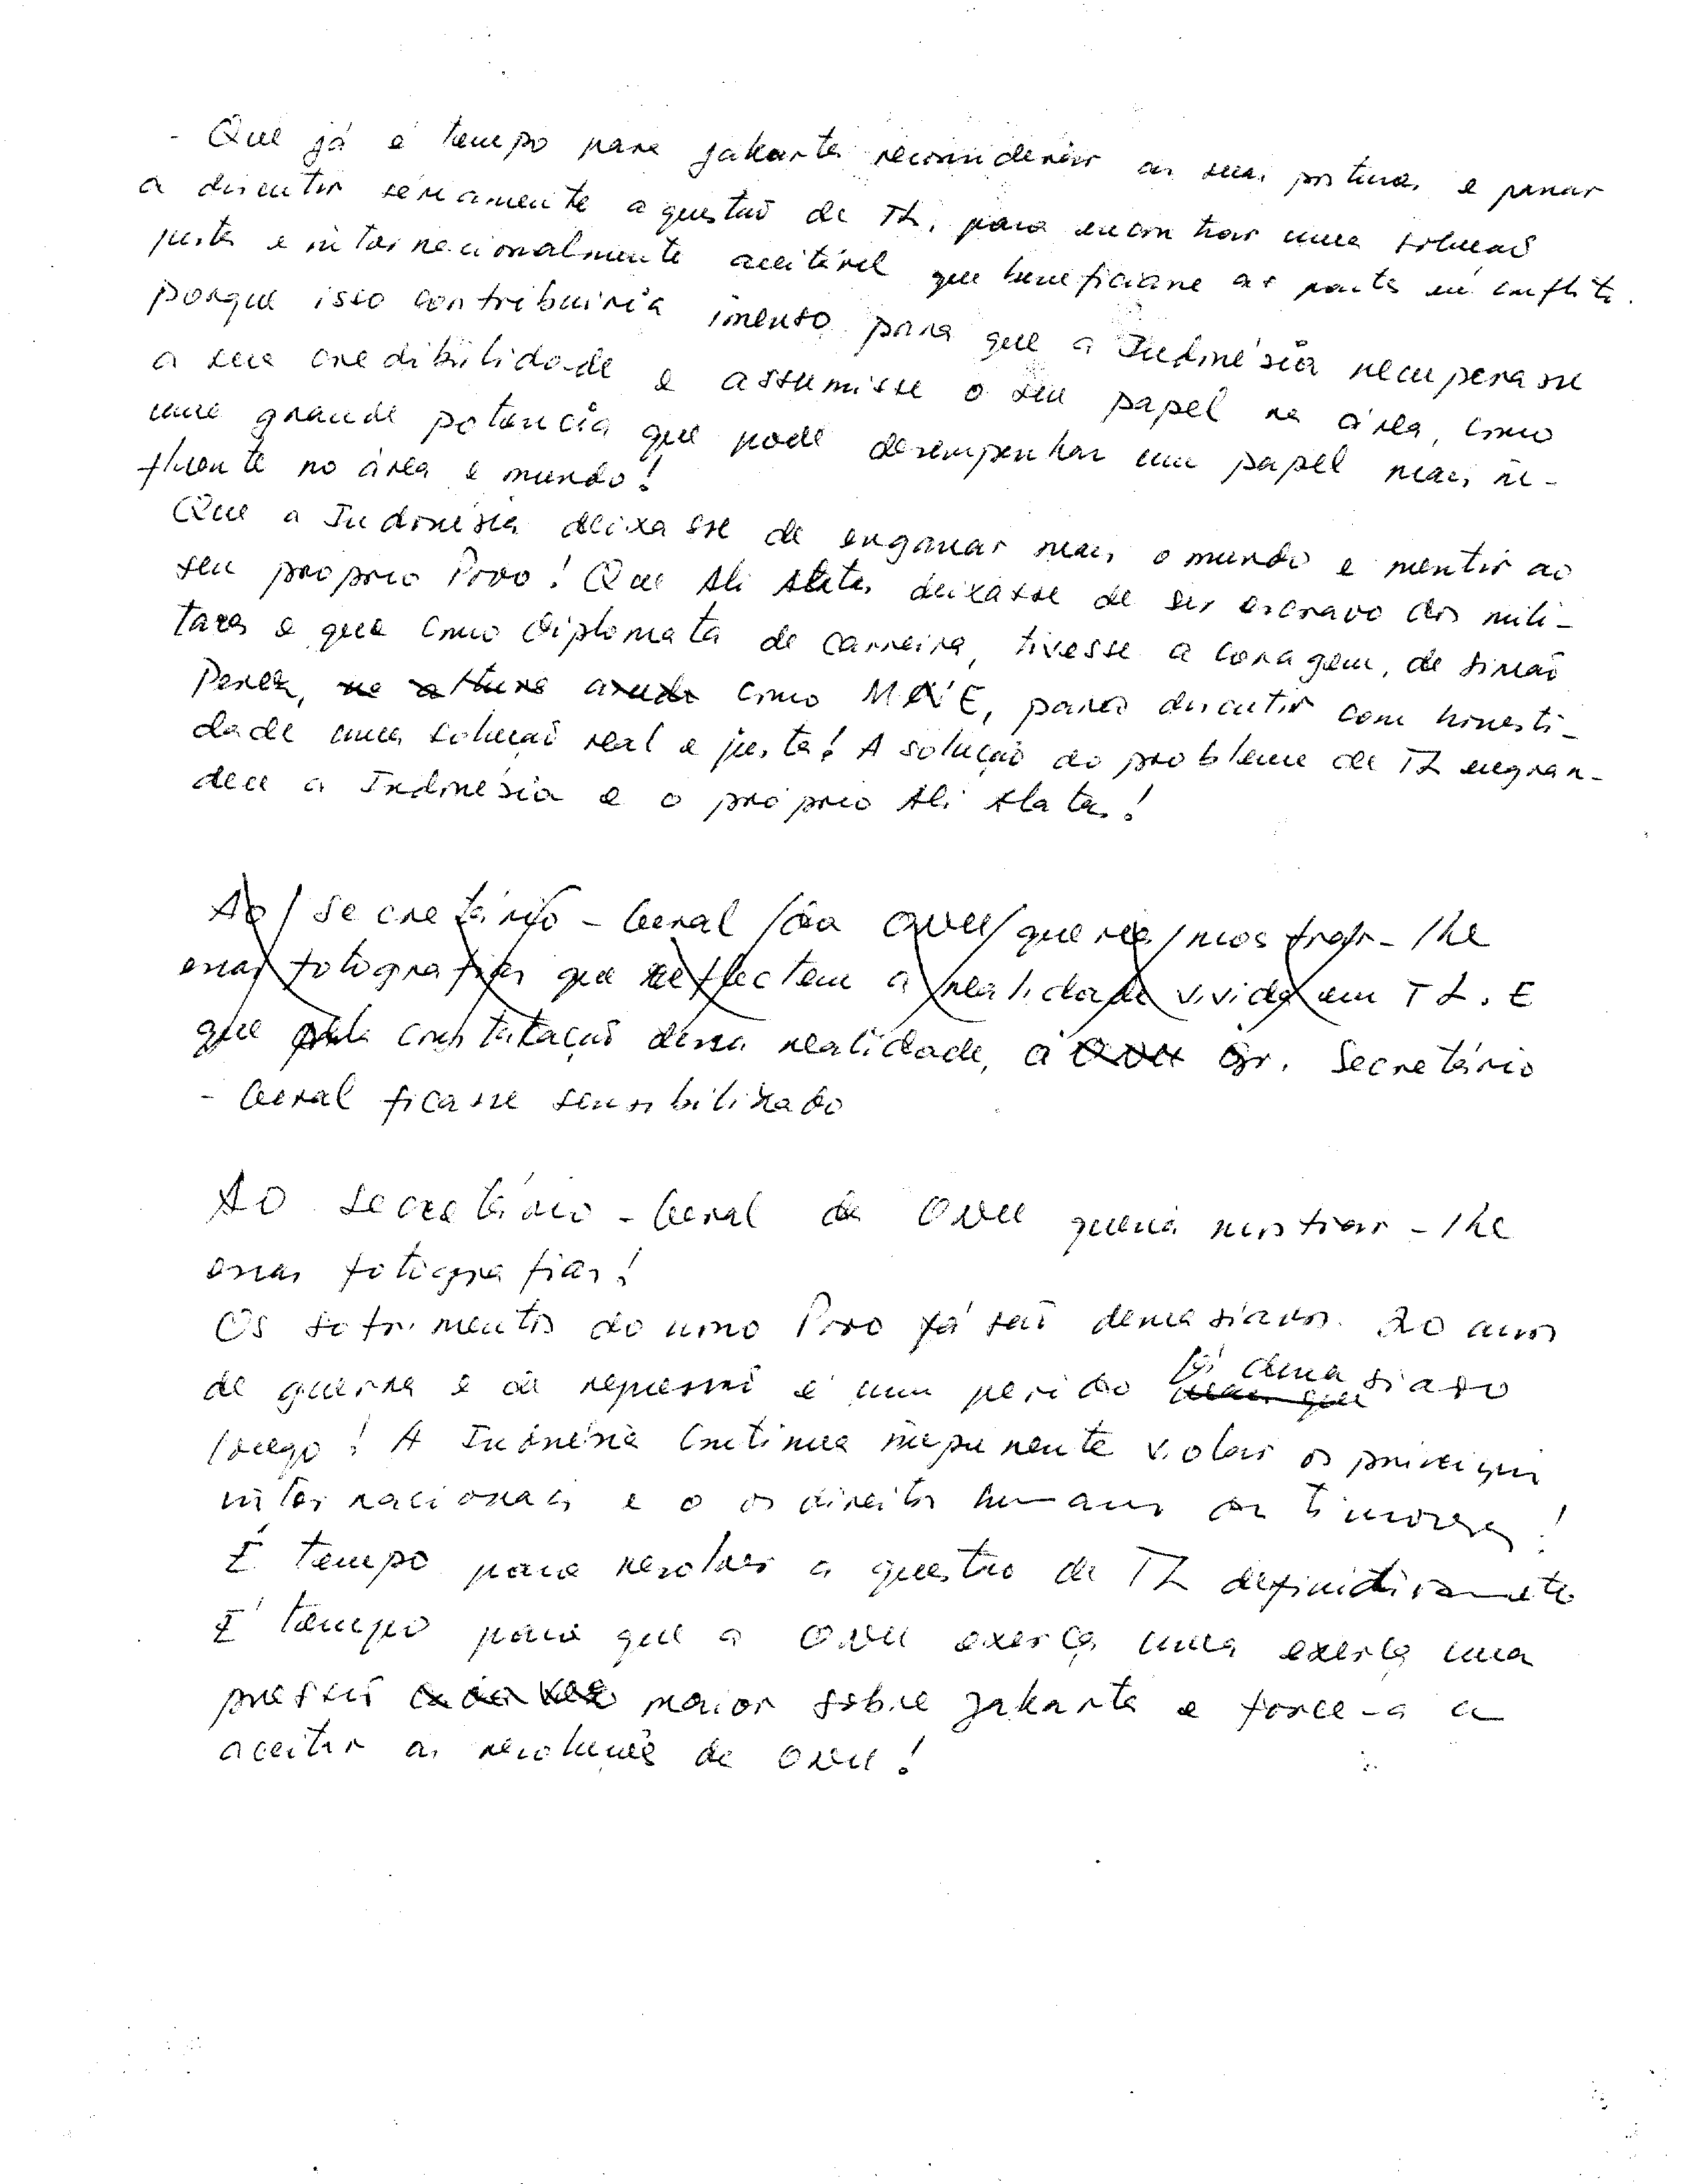 - Que já é tempo para Jakarta reconsiderar as suas posturas e passar
a discutir sériamente a questão de TL, para encontrar uma solução
justa e internacionalmente aceitável que beneficiasse as partes em conflito.
Porque isso contribuiria imenso para que a Indonésia recuperasse
a sua credibilidade e assumisse o seu papel na área, como
uma grande potência que pode desempenhar um papel mais in-
fluente na área e mundo!
Que a Indonésia deixasse de enganar mais o mundo e mentir ao
seu próprio Povo! Que Ali Alatas deixasse de ser escravo dos mili-
tares e que como diplomata de carreira, tivesse a coragem, de Simão
Perez, como MNE, para discutir com honesti-
dade uma solução real e justa! A solução do problema de TL engran-
dece a Indonésia e o próprio Ali Alatas!
Ao Secretário-Geral da ONU queria mostrar-lhe
essas fotografias que reflectem a realidade vivida em TL. E
que pela constatação dessa realidade, o Sr. Secretário
- Geral ficasse sensibilizado
Ao Secretário-Geral da ONU queria mostrar-lhe
essas fotografias!
Os sofrimentos do nosso Povo já são demasiados. 20 anos
de guerra e de repressão é um período já demasiado
longo! A Indonésia continua impunemente violar os princípios
internacionais e o os direitos humanos dos timorenses!
É tempo para resolver a questão de TL definitivamente
É tempo para que a ONU exerça uma exerça uma
pressão maior sobre Jakarta e force-a a
aceitar as resoluções da ONU!